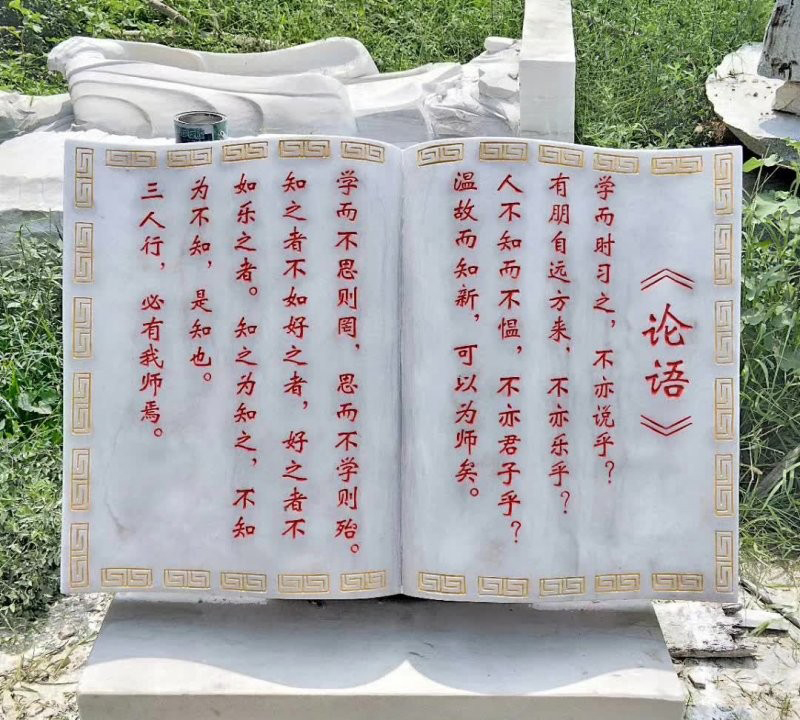 《论语》
学而时习之，不亦说乎？
有朋自远方来，不亦乐乎？
人不知而不愠，不亦君子乎？
温故而知新，可以为师矣。
学而不思则罔，思而不学则殆。
知之者不如好之者，好之者不
如乐之者。知之为知之，不知
为不知，是知也。
三人行，必有我师焉。